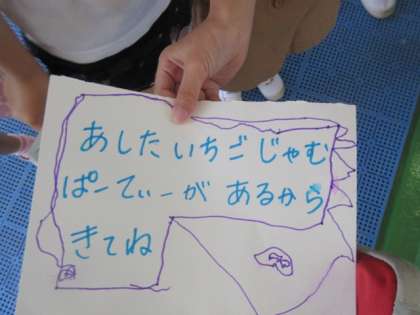 あしたいちごじゃむ
ぱーてぃーが あるから
きてね